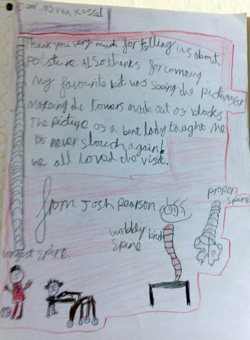 Dear Ms van Kassel
Thank you very much for telling us about
posture. Also thanks for coming.
my favourite bit was seeing the pictures
making the towers made out of blocks
The picture of a bent lady taught me
to never slouch again!
we all loved the visit.
from Josh Pearson
proper
spine
wobbly
spine
longest spine